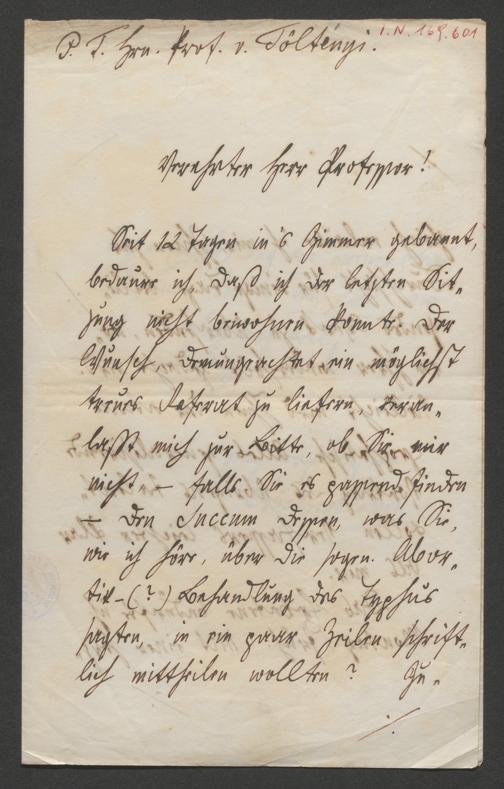 P. T. Hrn. Prof. v. Töltényi.
I.N. 169.601
Verehrter Herr Professor!
Seit 12 Tagen in's Zimmer gebannt,
bedaure ich, daß ich der letzten Sit-
zung nicht beiwohnen konnte. Der
Wunsch, demungeachtet ein möglichst
treues Referat zu liefern, veran-
laßt mich zur Bitte, ob Sie mir
nicht – falls Sie es passend finden
– den Succum dessen, was Sie,
wie ich höre, über die sogen. Abor-
tiv-(?) Behandlung des Typhus
sagten, in ein paar Zeilen schrift-
lich mittheilen wollten? Zu-
./.